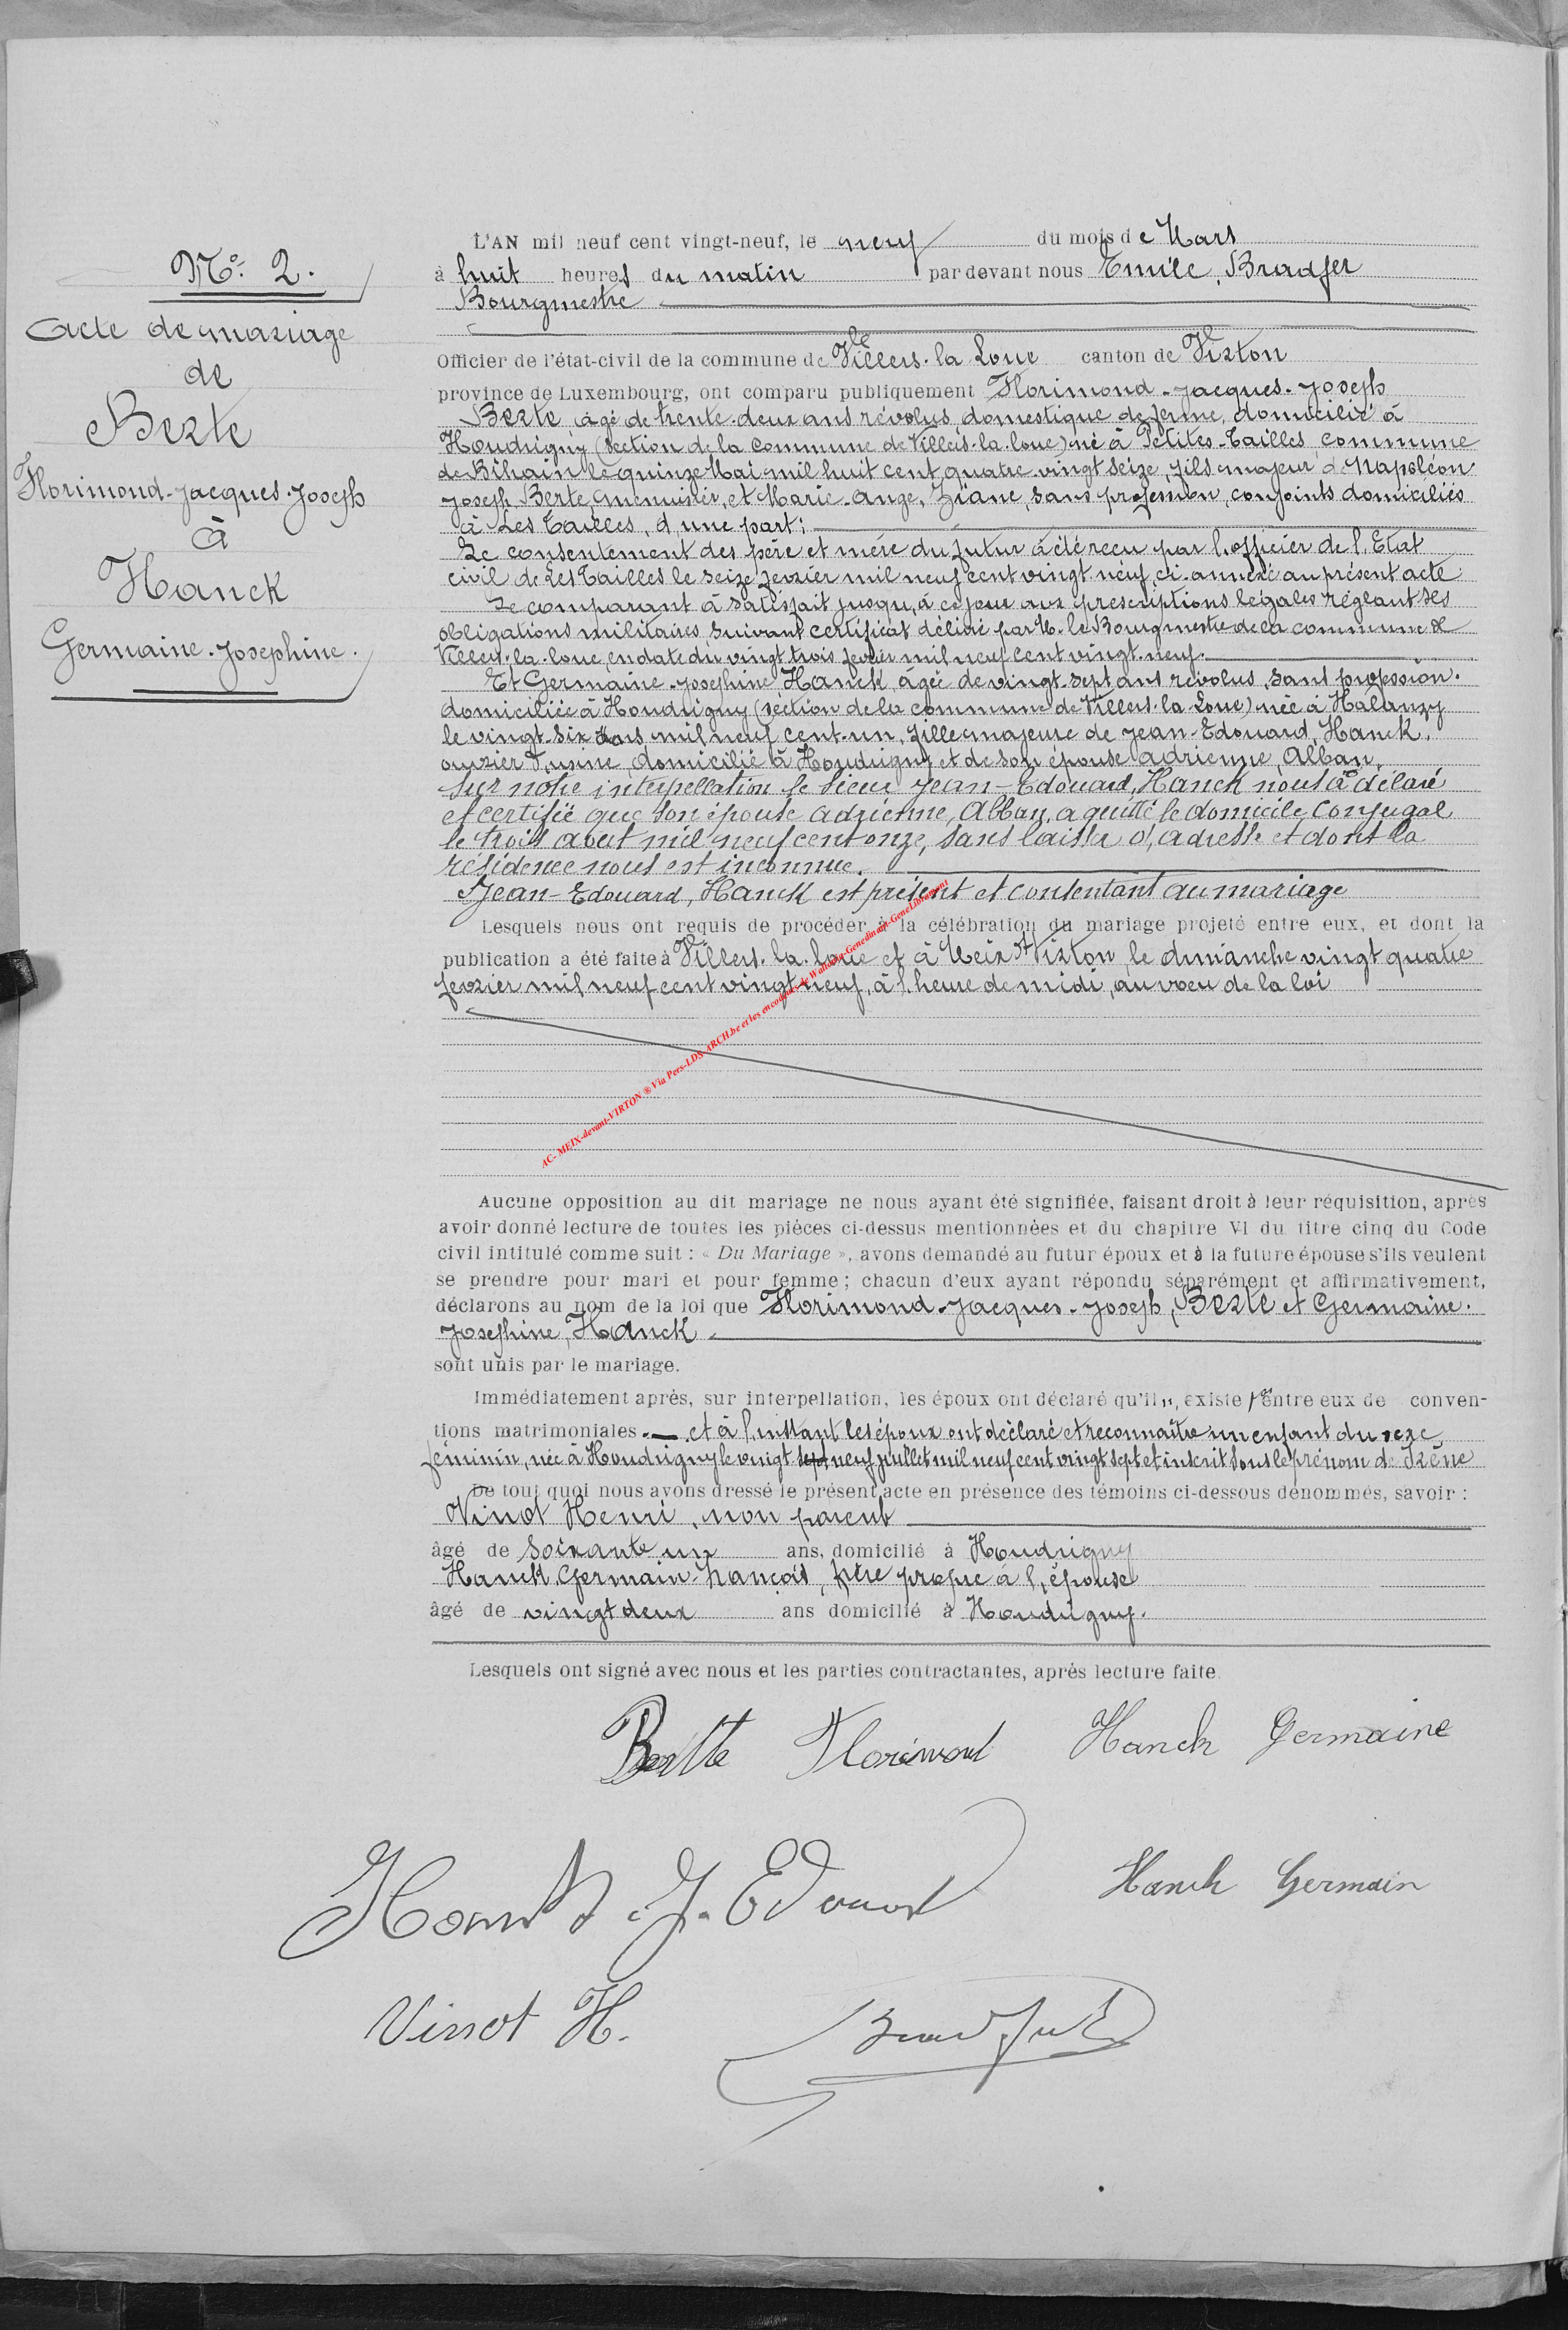 No. 2.
Acte de mariage
de
Berte
Florimond-Jacques-Joseph
à
Hanck
Germaine-Josephine.
L'AN mil neuf cent vingt-neuf, le neuf du mois de Mars
à huit heures du matin par devant nous Emile, Bradfer
Bourgmestre
Officier de l'état-civil de la commune de Villers-la-Loue canton de Virton
province de Luxembourg, ont comparu publiquement Florimond-Jacques-Joseph
Berte, âgé de trente-deux ans révolus, domestique de ferme, domicilié à
Houdrigny (section de la commune de Villers-la-loue) né à Petites-Tailles, commune
de Bihain le quinze Mai mil huit cent quatre-vingt seize, fils majeur de Napoléon-
Joseph, Berte, menuisier, et Marie-Ange, Ziane, sans profession, conjoints domiciliés
à Les Tailles, d'une part;
Le consentement des père et mère du futur à été reçu par l'officier de l'Etat
civil de Les Tailles le seize fevrier mil neuf cent vingt-neuf, ci-annexé au présent acte
Le comparant à satisfait jusqu'à ce jour aux prescriptions légales réglant ses
obligations militaires suivant certificat délivré par M. le Bourgmestre de la commune de
Villers-la-loue, en date du vingt trois fevrier mil neuf cent vingt-neuf.
Et Germaine-Josephine, Hanck, âgée de vingt-sept ans révolus, sans profession.
domiciliée à Houdrigny (section de la commune de Villers-la-Loue) née à Halanzy
le vingt-six mil neuf cent-un, fille majeure de Jean-Edouard, Hanck,
ouvrier d'usine, domicilié à Houdrigny et de son épouse Adrienne, Alban.
Sur notre interpellation le sieur Jean-Edouard, Hanck nous à déclaré
et certifié que son épouse Adrienne, Alban, a quitté le domicile conjugal
le trois août mil neuf cent onze, sans laisser d'adresse et dont la
résidence nous est inconnue.
Jean-Edouard, Hanck est présent et consentant au mariage
Lesquels nous ont requis de procéder à la célébration du mariage projeté entre eux, et dont la
publication a été faite à Villers-la-loue et à Meix dt Virton, le dimanche vingt quatre
fevrier mil neuf cent vingt neuf, à l'heure de midi, au voeu de la loi
AC- MEIX-devant-VIRTON ® Via Pers-LDS-ARCH.be et les encodeurs de Genedinant-GeneLibramont
Aucune opposition au dit mariage ne nous ayant été signifiée, faisant droit à leur réquisition, après
avoir donné lecture de toutes les pièces ci-dessus mentionnées et du chapitre VI du titre cinq du Code
civil intitulé comme suit : « Du Mariage », avons demandé au futur époux et à la future épouse s'ils veulent
se prendre pour mari et pour femme ; chacun d'eux ayant répondu séparément et affirmativement,
déclarons au nom de la loi que Florimond-Jacques-Joseph, Berte et Germaine-
Josephine, Hanck
sont unis par le mariage.
Immédiatement après, sur interpellation, les époux ont déclaré qu'il n'existe pas entre eux de conven-
tions matrimoniales. et à l'instant les époux ont déclaré et reconnaître un enfant du sexe
féminin, née à Houdrigny le vingt sept neuf juillet mil neuf cent vingt sept et inscrit sous le prénom de Irène
De tout quoi nous avons dressé le présent acte en présence des témoins ci-dessous dénommés, savoir :
Vinot Henri, non parent
âgé de soixante un ans, domicilié à Houdrigny
Hanck, Germain-François, frère propre à l'épouse
âgé de vingt deux ans domicilié à Houdrigny.
Lesquels ont signé avec nous et les parties contractantes, après lecture faite.
Bertte Florimont Hanck Germaine
J. Edouard Hanck Germain
Vinot H.